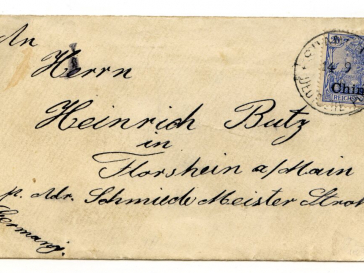 An
Herrn
Heinrich Butz
in
Florshein a/Main
p. Adr. Schmiede Meister
Germany.
Chin
REICHS